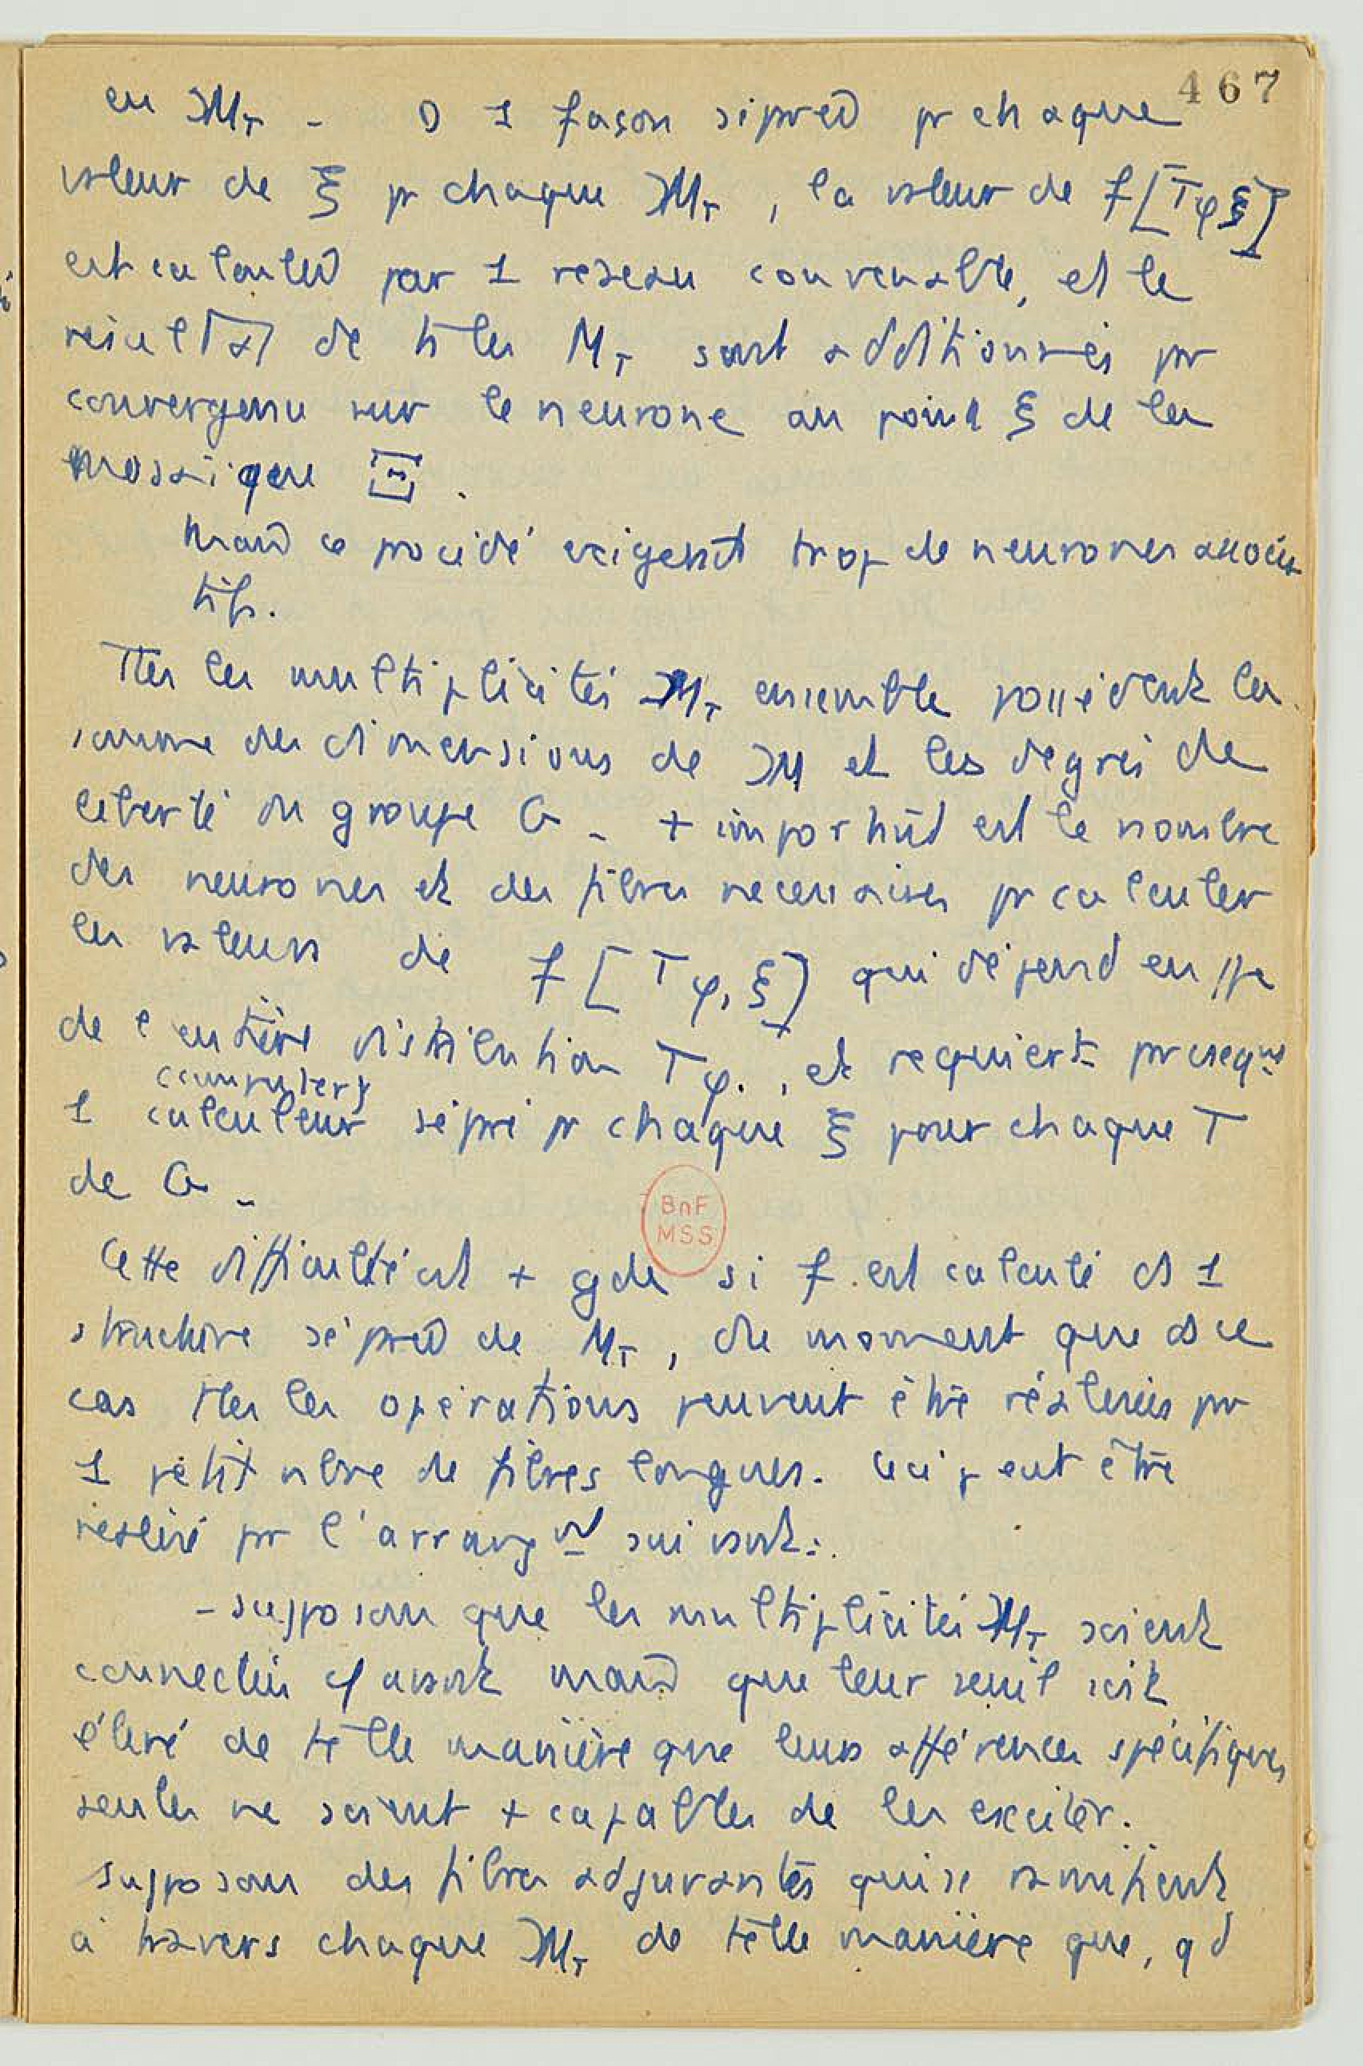 467
en M_T - D 1 façon séparée pr chaque
valeur de ξ pr chaque M_T, la valeur de f[Tφξ]
est calculée par 1 réseau convenable, et le
résultat de ttes les M_T sont additionnés pr
convergence sur le neurone au point ξ de la
mosaïque Ξ.
mais ce procédé exigerait trop de neurones associa
tifs.
Ttes les multiplicités M_T ensemble possèdent la
somme des dimensions de M et les degrés de
liberté du groupe G - + important est le nombre
des neurones et des fibres nécessaires pr calculer
les valeurs de f[Tφ, ξ] qui dépend en ppe
de l'entière distribution Tφ., et requiert presque
computers
1 calculeur séparé pr chaque ξ pour chaque T
de G -
BnF
MSS
Cette difficulté est + gde si f est calculé ds 1
structure séparée de M_T, du moment que ds ce
cas ttes les opérations peuvent être réalisées pr
1 petit nbre de fibres longues. Ceci peut être
réalisé pr l'arrangt suivant :
- supposons que les multiplicités M_T soient
connectées avant mais que leur seuil soit
élevé de telle manière que leurs afférences spécifiques
seules ne soient + capables de les exciter.
supposons des fibres adjuvantes qui se ramifient
à travers chaque M_T de telle manière que, qd